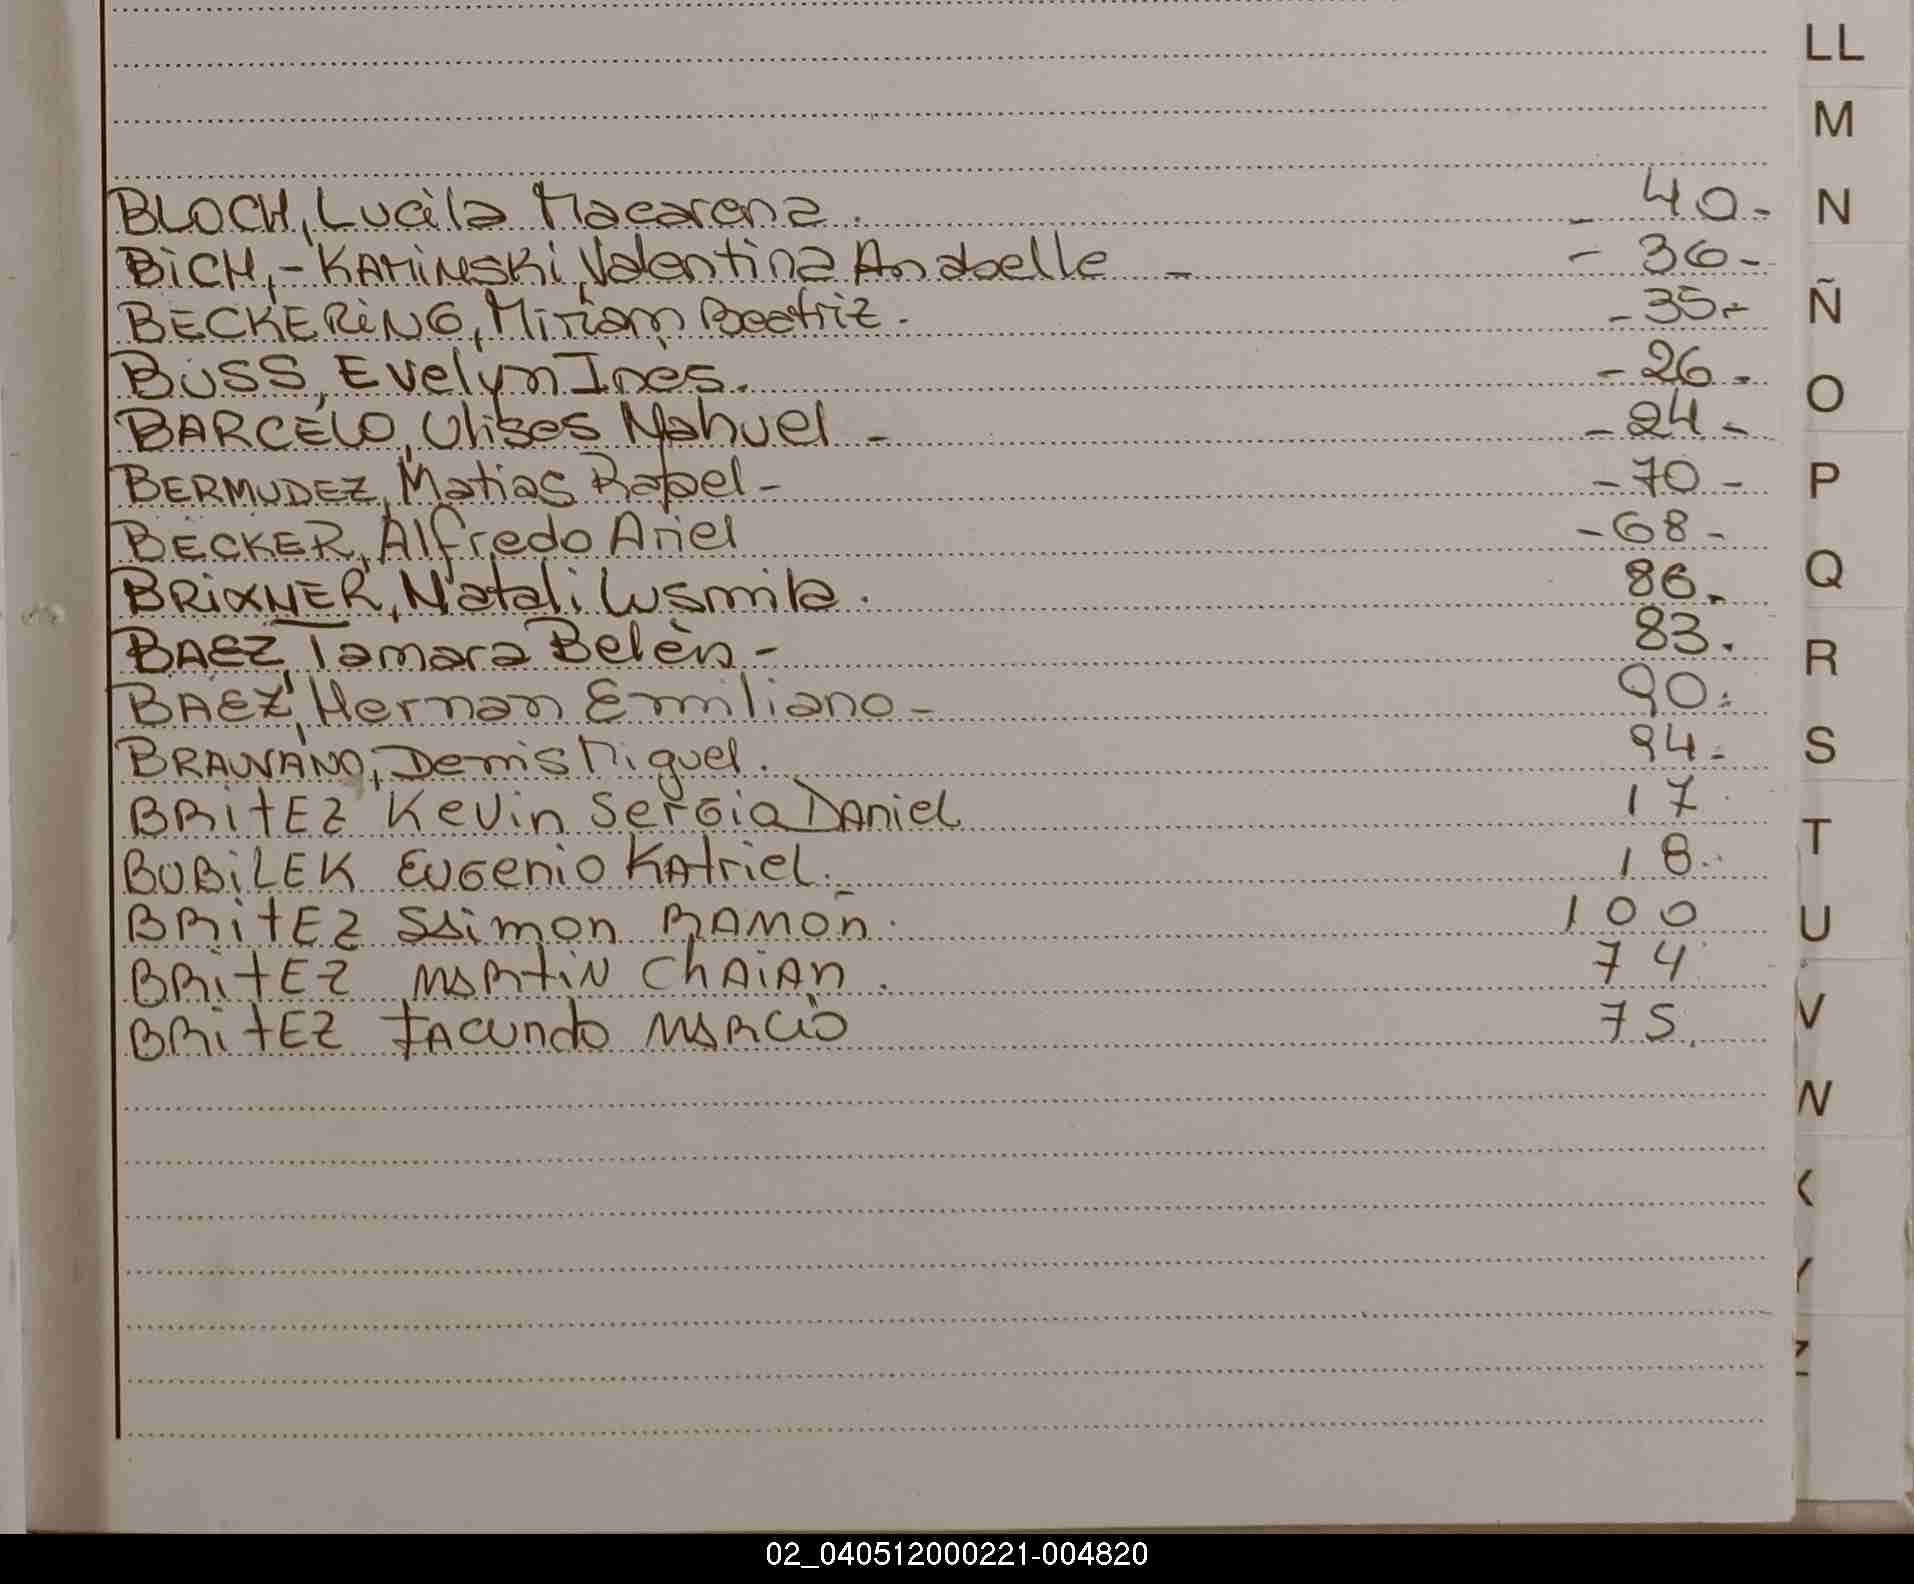 LL
M
BLOCH, Lucila Macarena. - 40- N
BiCH,-KAMiNSKi, Valentina Anabelle - - 36-
BECKERiNG, Miriam Beatriz. - 35.- Ñ
BUSS, Evelyn Inès. - 26. O
BARCELO, Ulises Nahuel - - 24 -
BERMUDEZ, Matias Rafael - - 70 - P
BECKER, Alfredo Ariel - 68 -
BRiXNER, Natali Lusmila. 86. Q
BAEZ, Tamara Belèn - 83. R
BAEZ, Hernan Emiliano - 90.
Miguel. 94. S
BRitEZ Kevin Sergio DAniel 17
BUBiLEK EuGenio KAtriel. 18. T
BRitEZ Ssimon RAMON. 100 U
BRitEZ MARtiN ChAiAn. 74
BRitEZ FAcundo MARCiO 75. V
W
X
Y
Z
02_040512000221-004820